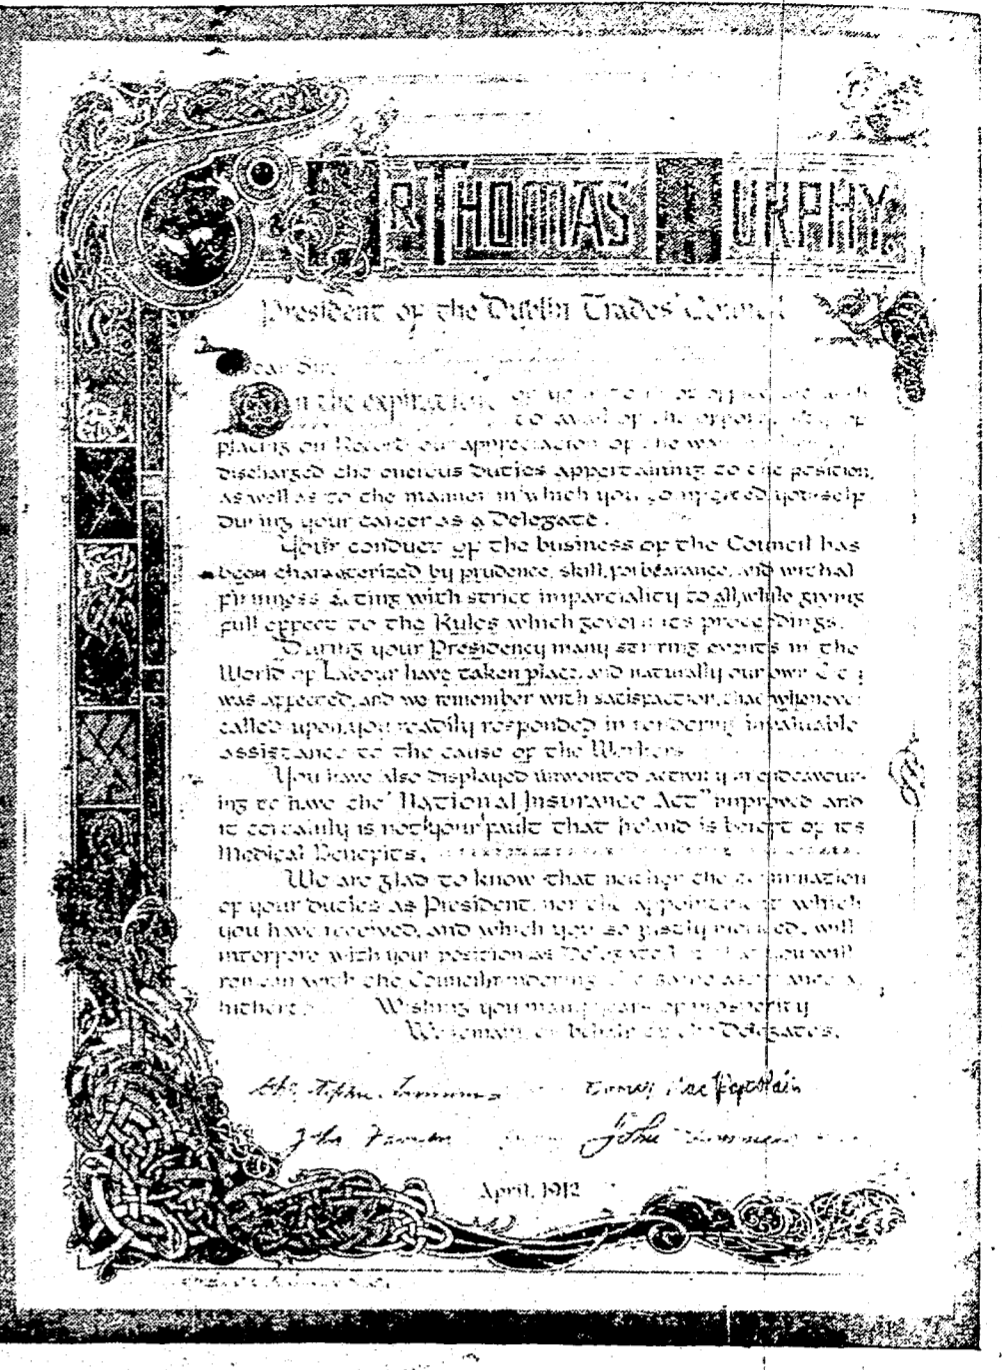 To Mr Thomas Murphy,
President of the Dublin Trades' Council
Dear Sir,
On the expiration of your term of office we wish
to avail of the opportunity of
placing on Record our appreciation of the way
discharged the onerous duties appertaining to the position,
as well as to the manner in which you conducted yourself
During your career as a Delegate.
Your conduct of the business of the Council has
been characterized by prudence, skill, forbearance, and withal
firmness acting with strict impartiality to all, while giving
full effect to the Rules which govern its proceedings.
During your Presidency many stirring events in the
World of Labour have taken place, and naturally our own City
was affected, and we remember with satisfaction, that whenever
called upon, you readily responded in rendering invaluable
assistance to the cause of the Workers
You have also displayed unwonted activity in endeavour-
ing to have the "National Insurance Act" improved and
it certainly is not your fault that Ireland is bereft of its
Medical Benefits.
We are glad to know that neither the termination
of your duties as President, nor the appointment which
you have received, and which you so justly merited, will
interfere with your position as Delegate, that you will
remain with the Council rendering the same assistance as
hitherto Wishing you many years of prosperity
We remain, on behalf of the Delegates,
John
April, 1912